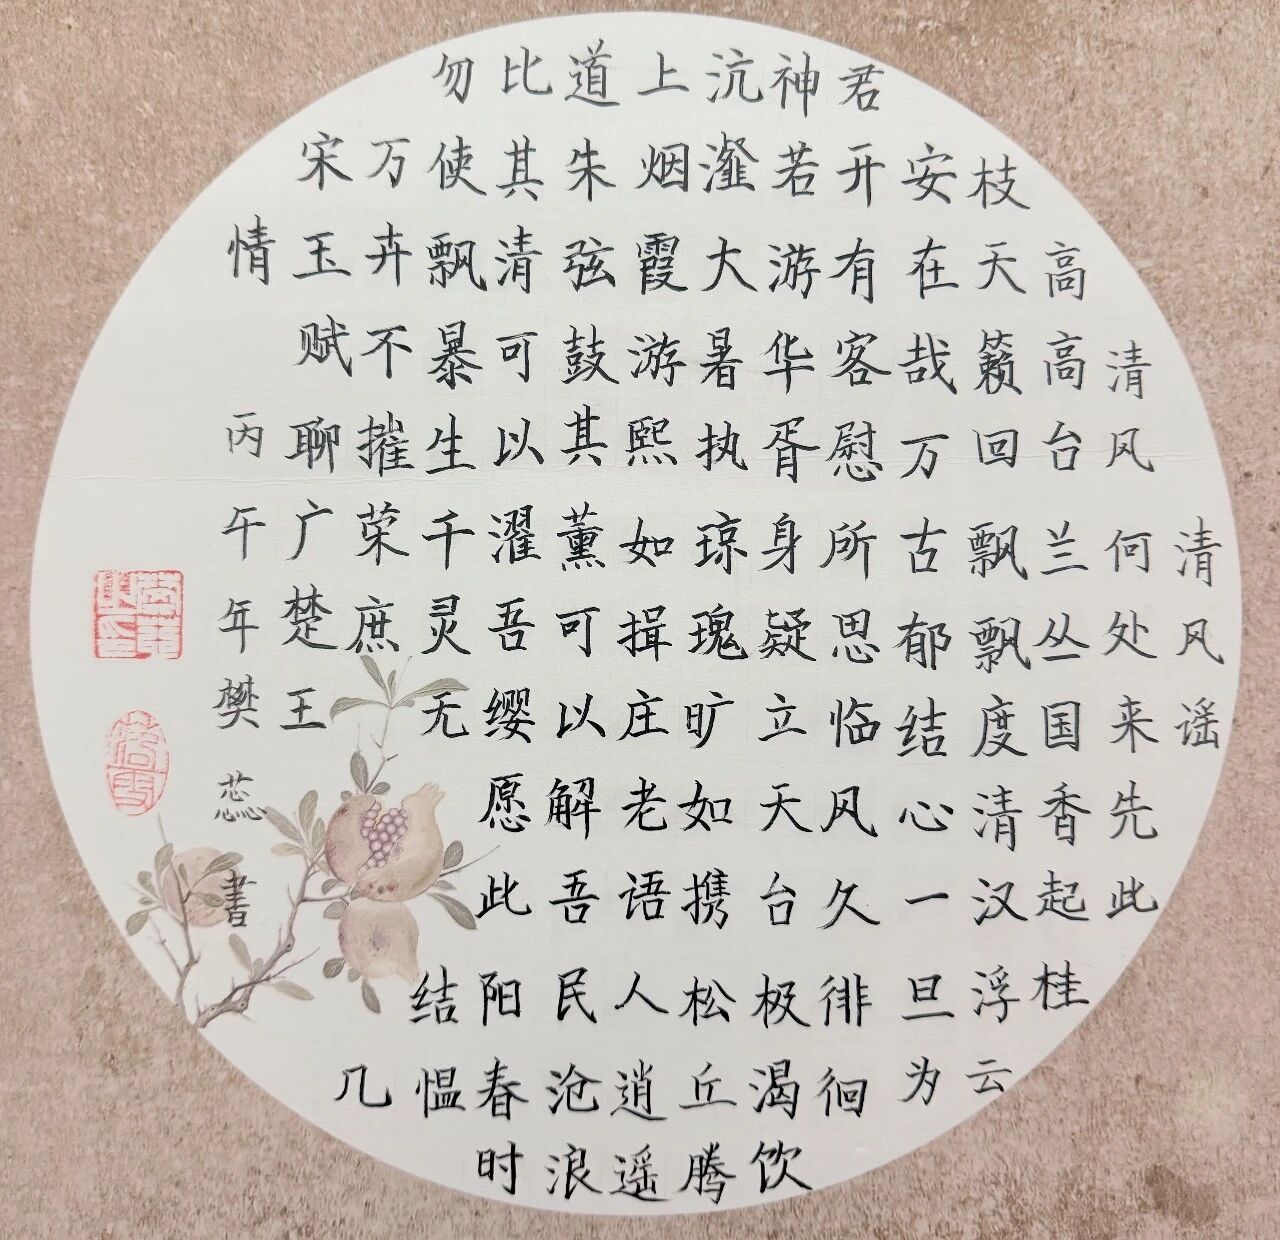 清风谣
清风何处来先此
高高台兰丛国香起桂
枝天籁回飘飘度清汉浮云
安在哉万古郁结心一旦为
君开有客慰所思临风久徘徊
神若游华胥身疑立天台极渴饮
沆瀣大暑执琼瑰旷如携松丘腾
上烟霞游熙如揖庄老语人逍遥
道朱弦鼓其薰可以解吾民沧浪
比其清可以濯吾缨愿此阳春时
勿使飘暴生千灵无结愠
万卉不摧荣庶几
宋玉赋聊广楚王
情
丙午年樊蕊書